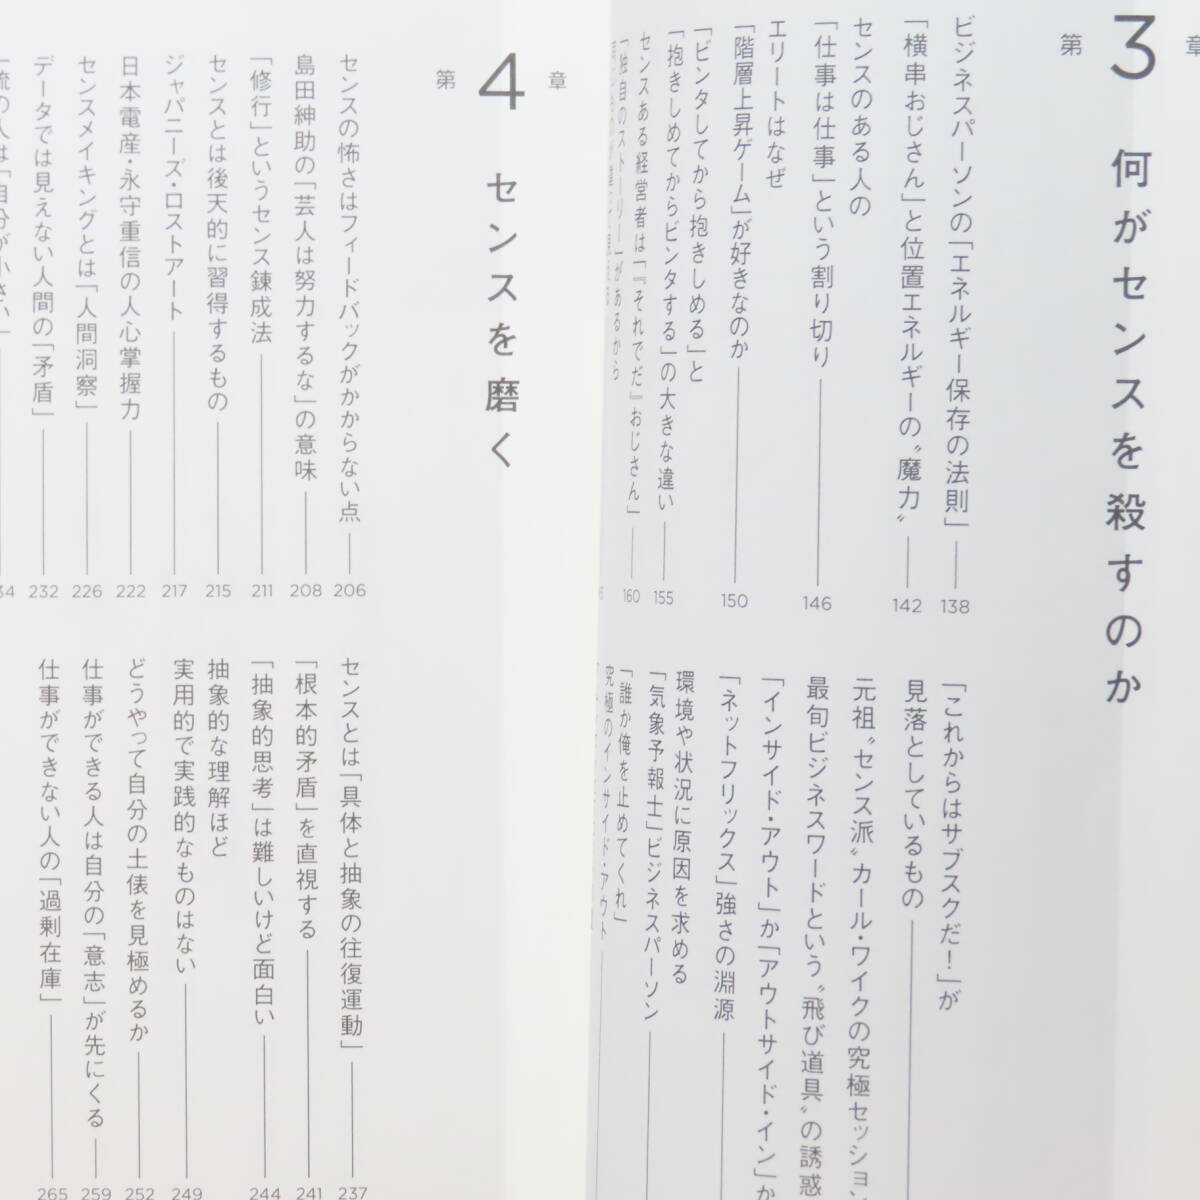 第3章
何がセンスを殺すのか
ビジネスパーソンの「エネルギー保存の法則」 138
「横串おじさん」と位置エネルギーの〝魔力〟 142
センスのある人の
「仕事は仕事」という割り切り 146
エリートはなぜ
「階層上昇ゲーム」が好きなのか 150
「ビンタしてから抱きしめる」と
「抱きしめてからビンタする」の大きな違い 155
センスある経営者は「『それでだ』おじさん」 160
「独自のストーリー」があるから
「これからはサブスクだ!」が
見落としているもの
元祖〝センス派〟カール・ワイクの究極セッション
最旬ビジネスワードという〝飛び道具〟の誘惑
「インサイド・アウト」か「アウトサイド・イン」か
「ネットフリックス」強さの淵源
環境や状況に原因を求める
「気象予報士」ビジネスパーソン
「誰か俺を止めてくれ」
究極のインサイド・アウト
第4章
センスを磨く
センスの怖さはフィードバックがかからない点 206
島田紳助の「芸人は努力するな」の意味 208
「修行」というセンス錬成法 211
センスとは後天的に習得するもの 215
ジャパニーズ・ロストアート 217
日本電産・永守重信の人心掌握力 222
センスメイキングとは「人間洞察」 226
データでは見えない人間の「矛盾」 232
センスとは「具体と抽象の往復運動」 237
「根本的矛盾」を直視する 241
「抽象的思考」は難しいけど面白い 244
抽象的な理解ほど
実用的で実践的なものはない 249
どうやって自分の土俵を見極めるか 252
仕事ができる人は自分の「意志」が先にくる 259
仕事ができない人の「過剰在庫」 265